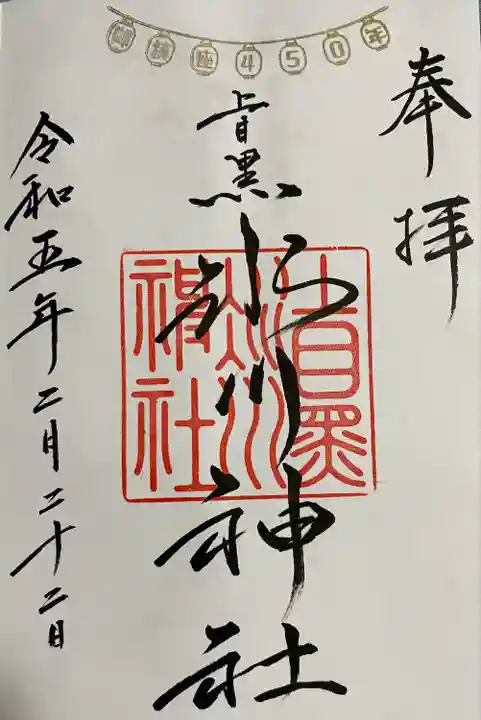 御鎮座450年
奉拝
上目黒
氷川神社
上目黒氷川神社
令和五年二月二十二日